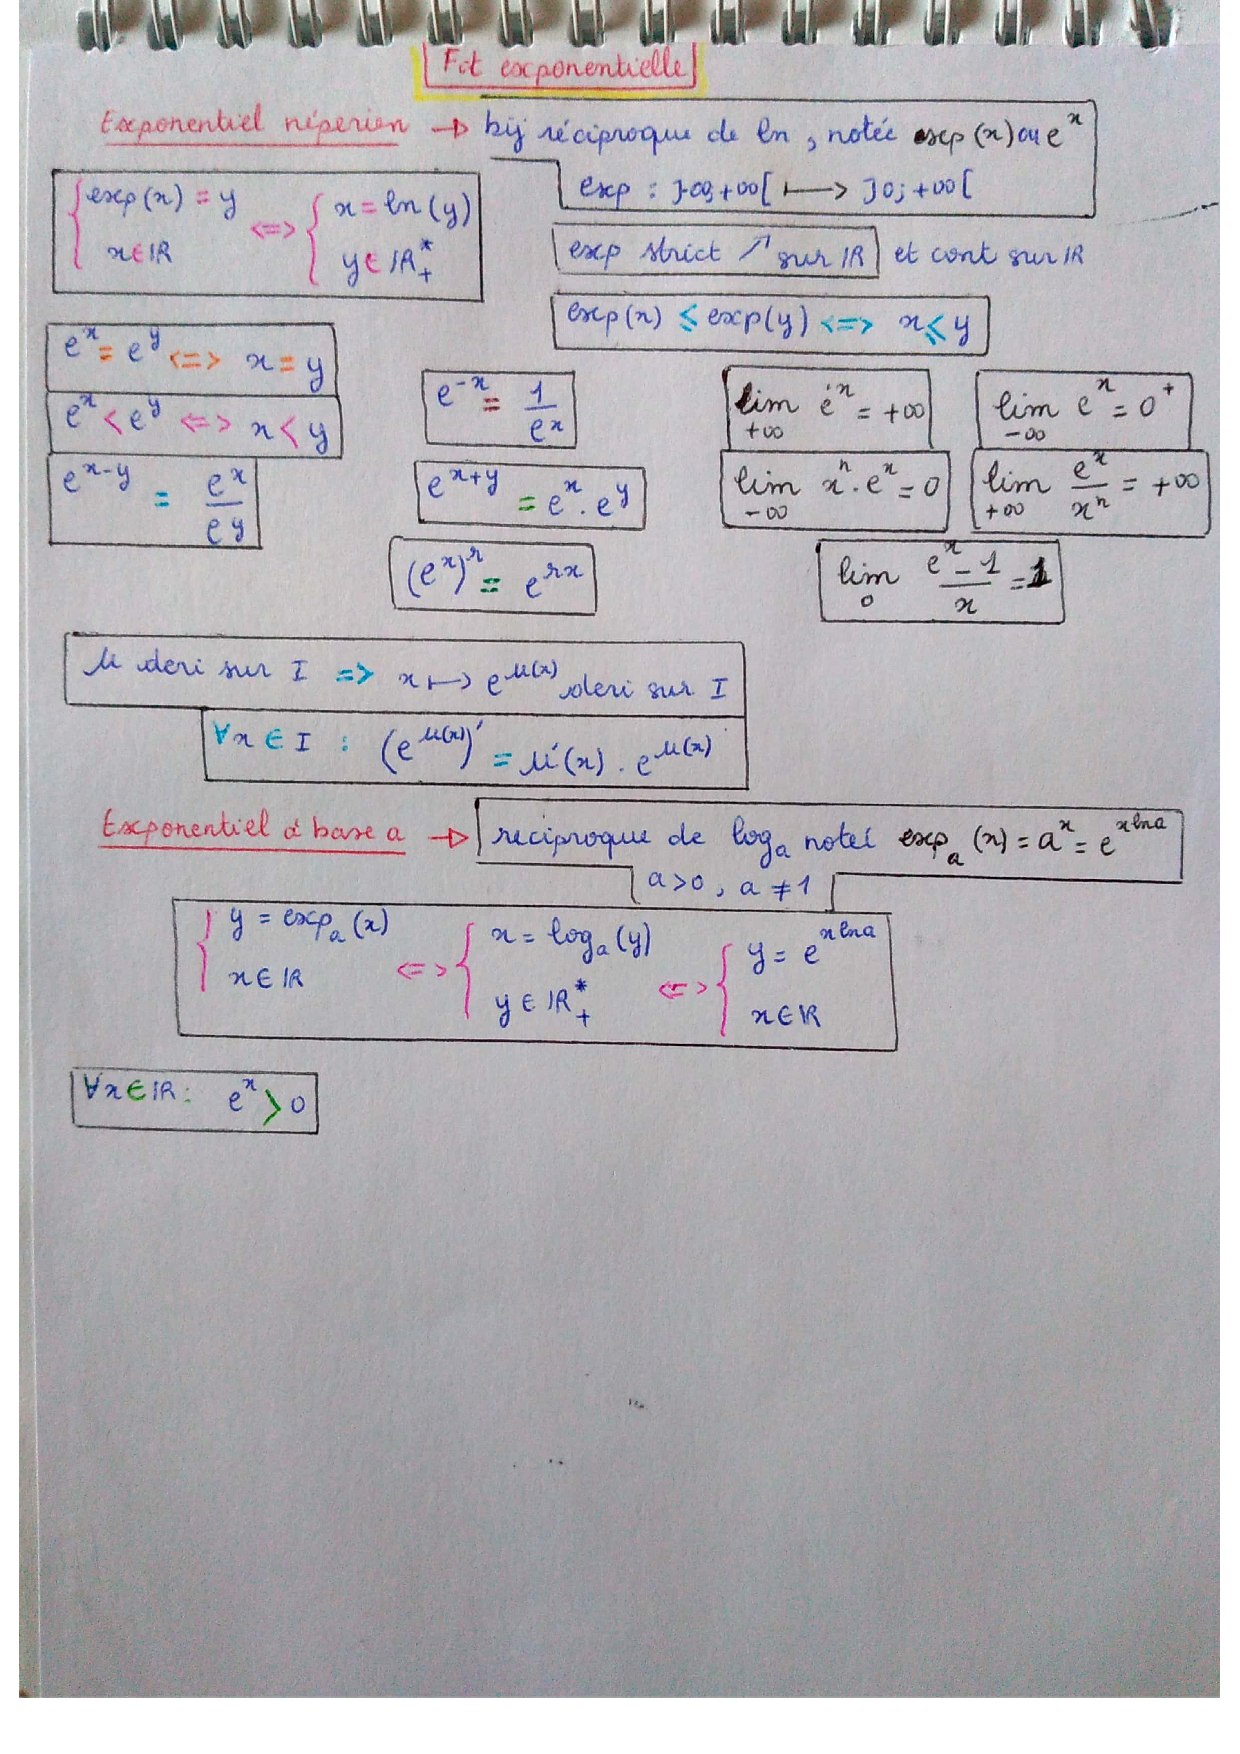 Fct exponentielle
Exponentiel néperien → bij réciproque de ln, notée exp(x) ou e^x
exp : ]-∞, +∞[ ⟼ ]0; +∞[
{ exp(x) = y <=> { x = ln(y)
x∈IR y∈IR*₊
exp strict ↗ sur IR et cont sur IR
exp(x) ≤ exp(y) <=> x ≤ y
e^x = e^y <=> x = y
e^x < e^y <=> x < y
e^(x-y) = e^x / e^y
e^(-x) = 1 / e^x
e^(x+y) = e^x . e^y
(e^x)^r = e^(rx)
lim e^x = +∞
+∞
lim e^x = 0⁺
-∞
lim x^n . e^x = 0
-∞
lim e^x / x^n = +∞
+∞
lim (e^x - 1) / x = 1
0
u deri sur I => x ⟼ e^(u(x)) deri sur I
∀x ∈ I : (e^(u(x)))' = u'(x) . e^(u(x))
Exponentiel à base a → reciproque de log_a noteé exp_a(x) = a^x = e^(x ln a)
a > 0, a ≠ 1
{ y = exp_a(x) <=> { x = log_a(y) <=> { y = e^(x ln a)
x∈IR y∈IR*₊ x∈IR
∀x∈IR : e^x > 0